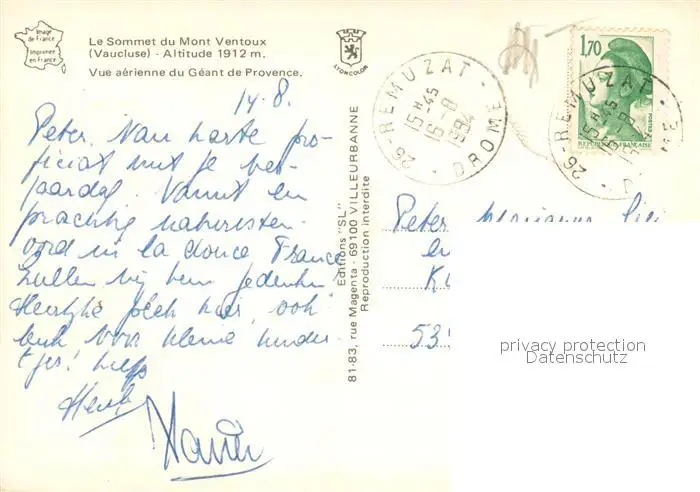 Image
de France
Imprimée
en France
Le Sommet du Mont Ventoux
(Vaucluse) - Altitude 1912 m.
Vue aérienne du Géant de Provence.
LYONCOLOR
14.8.
Peter. Van harte pro-
ficiat met je ver-
jaardag. Vanuit een
prachtig naturisten-
oord in la douce France
zullen wij hem gedenken
Heerlijke plek hier, ook
leuk voor kleine kinder-
tjes! Liefs
Henk
81-83, rue Magenta - 69100 VILLEURBANNE
Editions "SL"
Reproduction interdite
26-REMUZAT-DROME
15H45
16-8
1994
1,70
REPUBLIQUE FRANÇAISE
26-REMUZAT-DROME
15H45
16-8
Peter,
en
53
privacy protection
Datenschutz